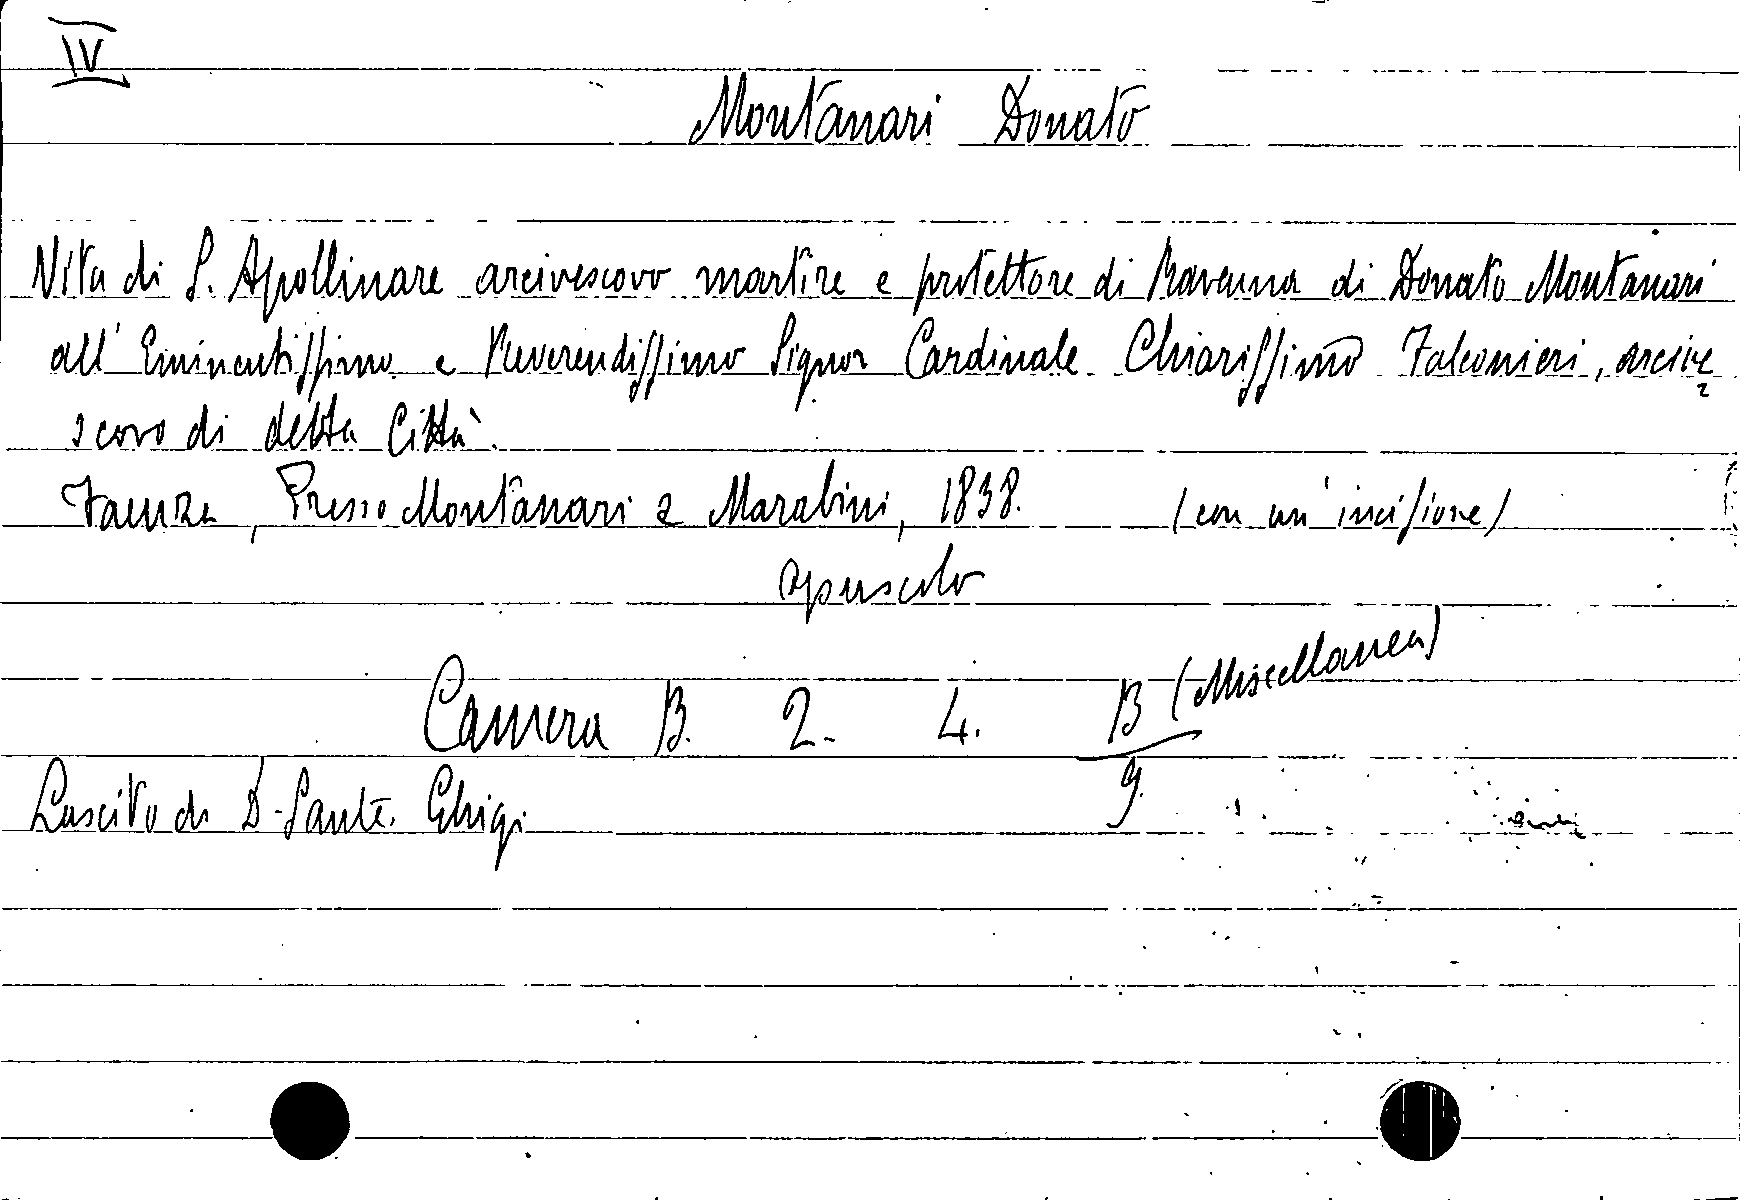 IV
Montanari Donato
Vita di S. Apollinare arcivescovo martire e protettore di Ravenna di Donato Montanari
all'Eminentissimo e Reverendissimo Signor Cardinale Chiarissimo Falconieri, arcive=
scovo di detta Città.
Faenza, Presso Montanari e Marabini, 1838. (con un'incisione)
opuscolo
Camera B. 2. 4. B (Miscellanea)
9.
Lascito di D. Sante Ghigi